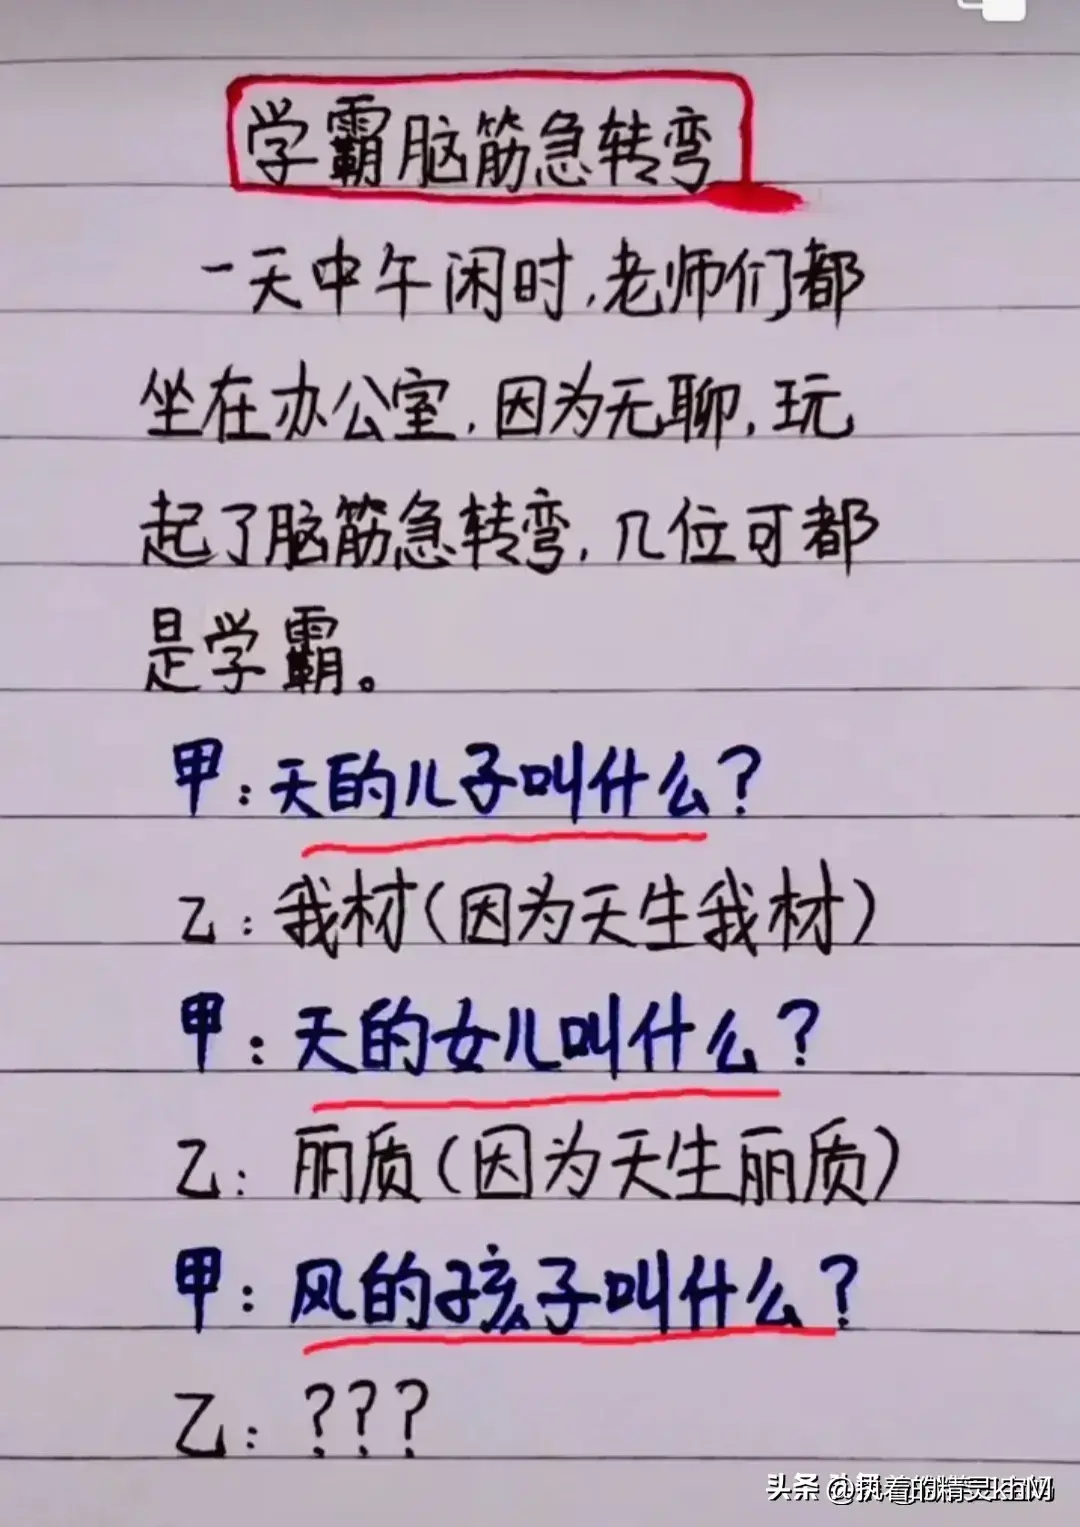 学霸脑筋急转弯
一天中午闲时,老师们都
坐在办公室,因为无聊,玩
起了脑筋急转弯,几位可都
是学霸。
甲:天的儿子叫什么?
乙:我材(因为天生我材)
甲:天的女儿叫什么?
乙:丽质(因为天生丽质)
甲:风的孩子叫什么?
乙:???
头条